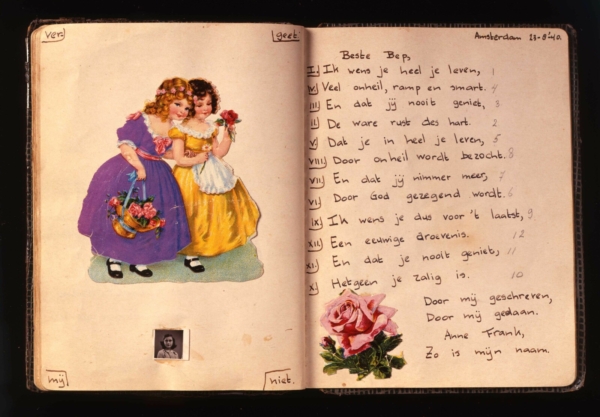 Ver=
geet
mij
niet.
Amsterdam 23-8-'40.
Beste Bep,
I. Ik wens je heel je leven, 1
IV. Veel onheil, ramp en smart. 4
III. En dat jij nooit geniet, 3
II. De ware rust des hart. 2
V. Dat je in heel je leven, 5
VIII. Door onheil wordt bezocht. 8
VII. En dat jij nimmer meer, 7
VI. Door God gezegend wordt. 6
IX. Ik wens je dus voor 't laatst, 9
XII. Een eeuwige droevenis. 12
XI. En dat je nooit geniet, 11
X. Hetgeen je zalig is. 10
Door mij geschreven,
Door mij gedaan.
Anne Frank,
Zo is mijn naam.